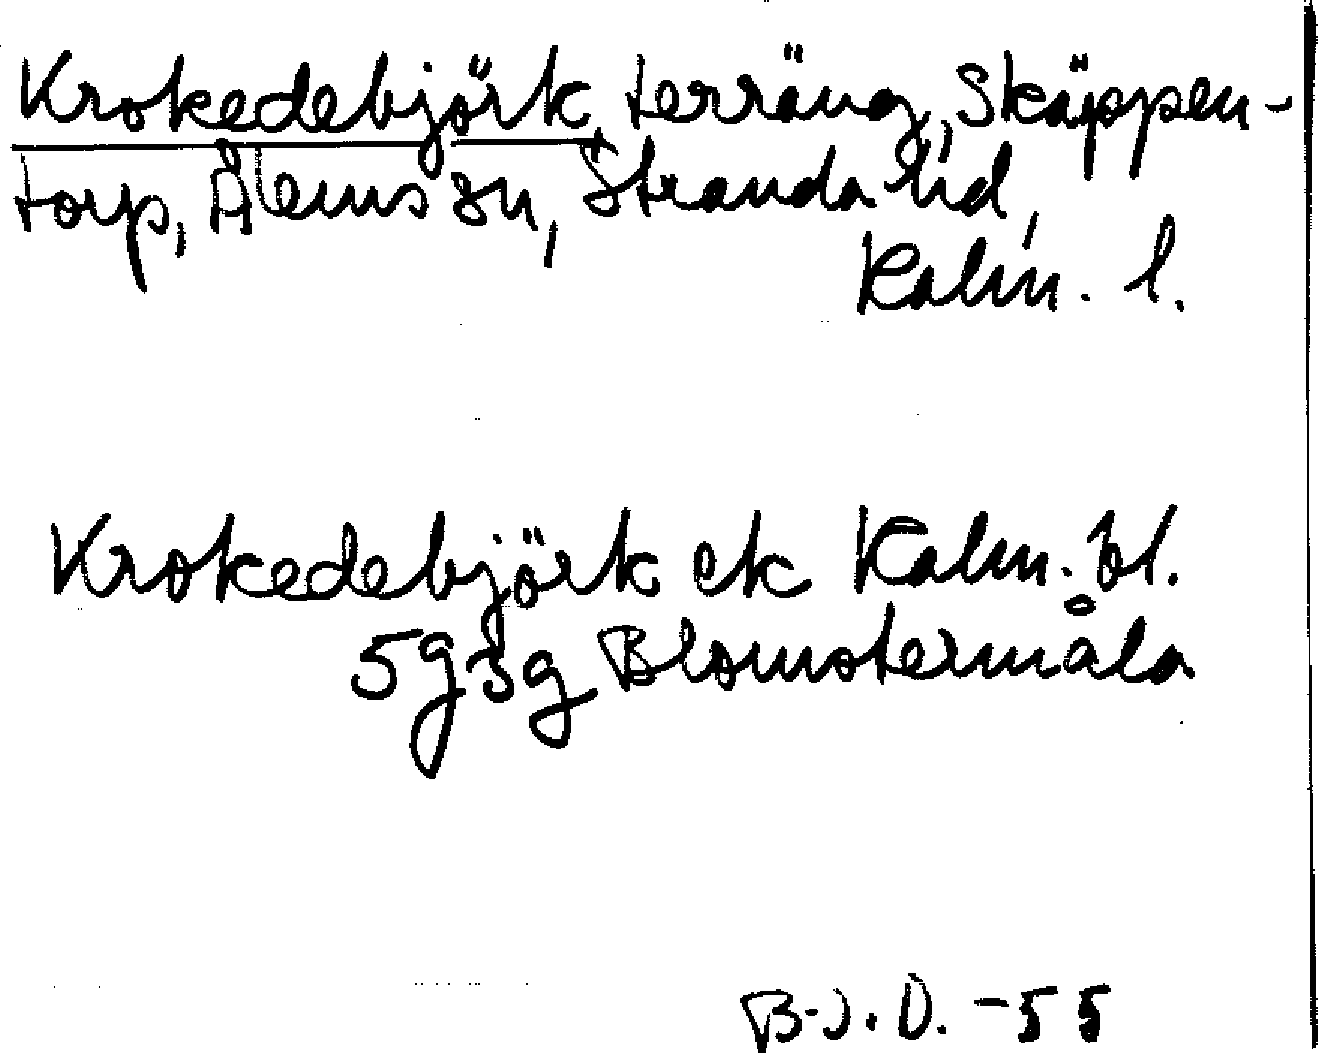 Krokedebjörk, terräng, Skäppen-
torp, Ålems sn, Stranda hd,
Kalm. l.
Krokedebjörk ek Kalm. bl.
5g3g Blomstermåla
B-J. O. -55